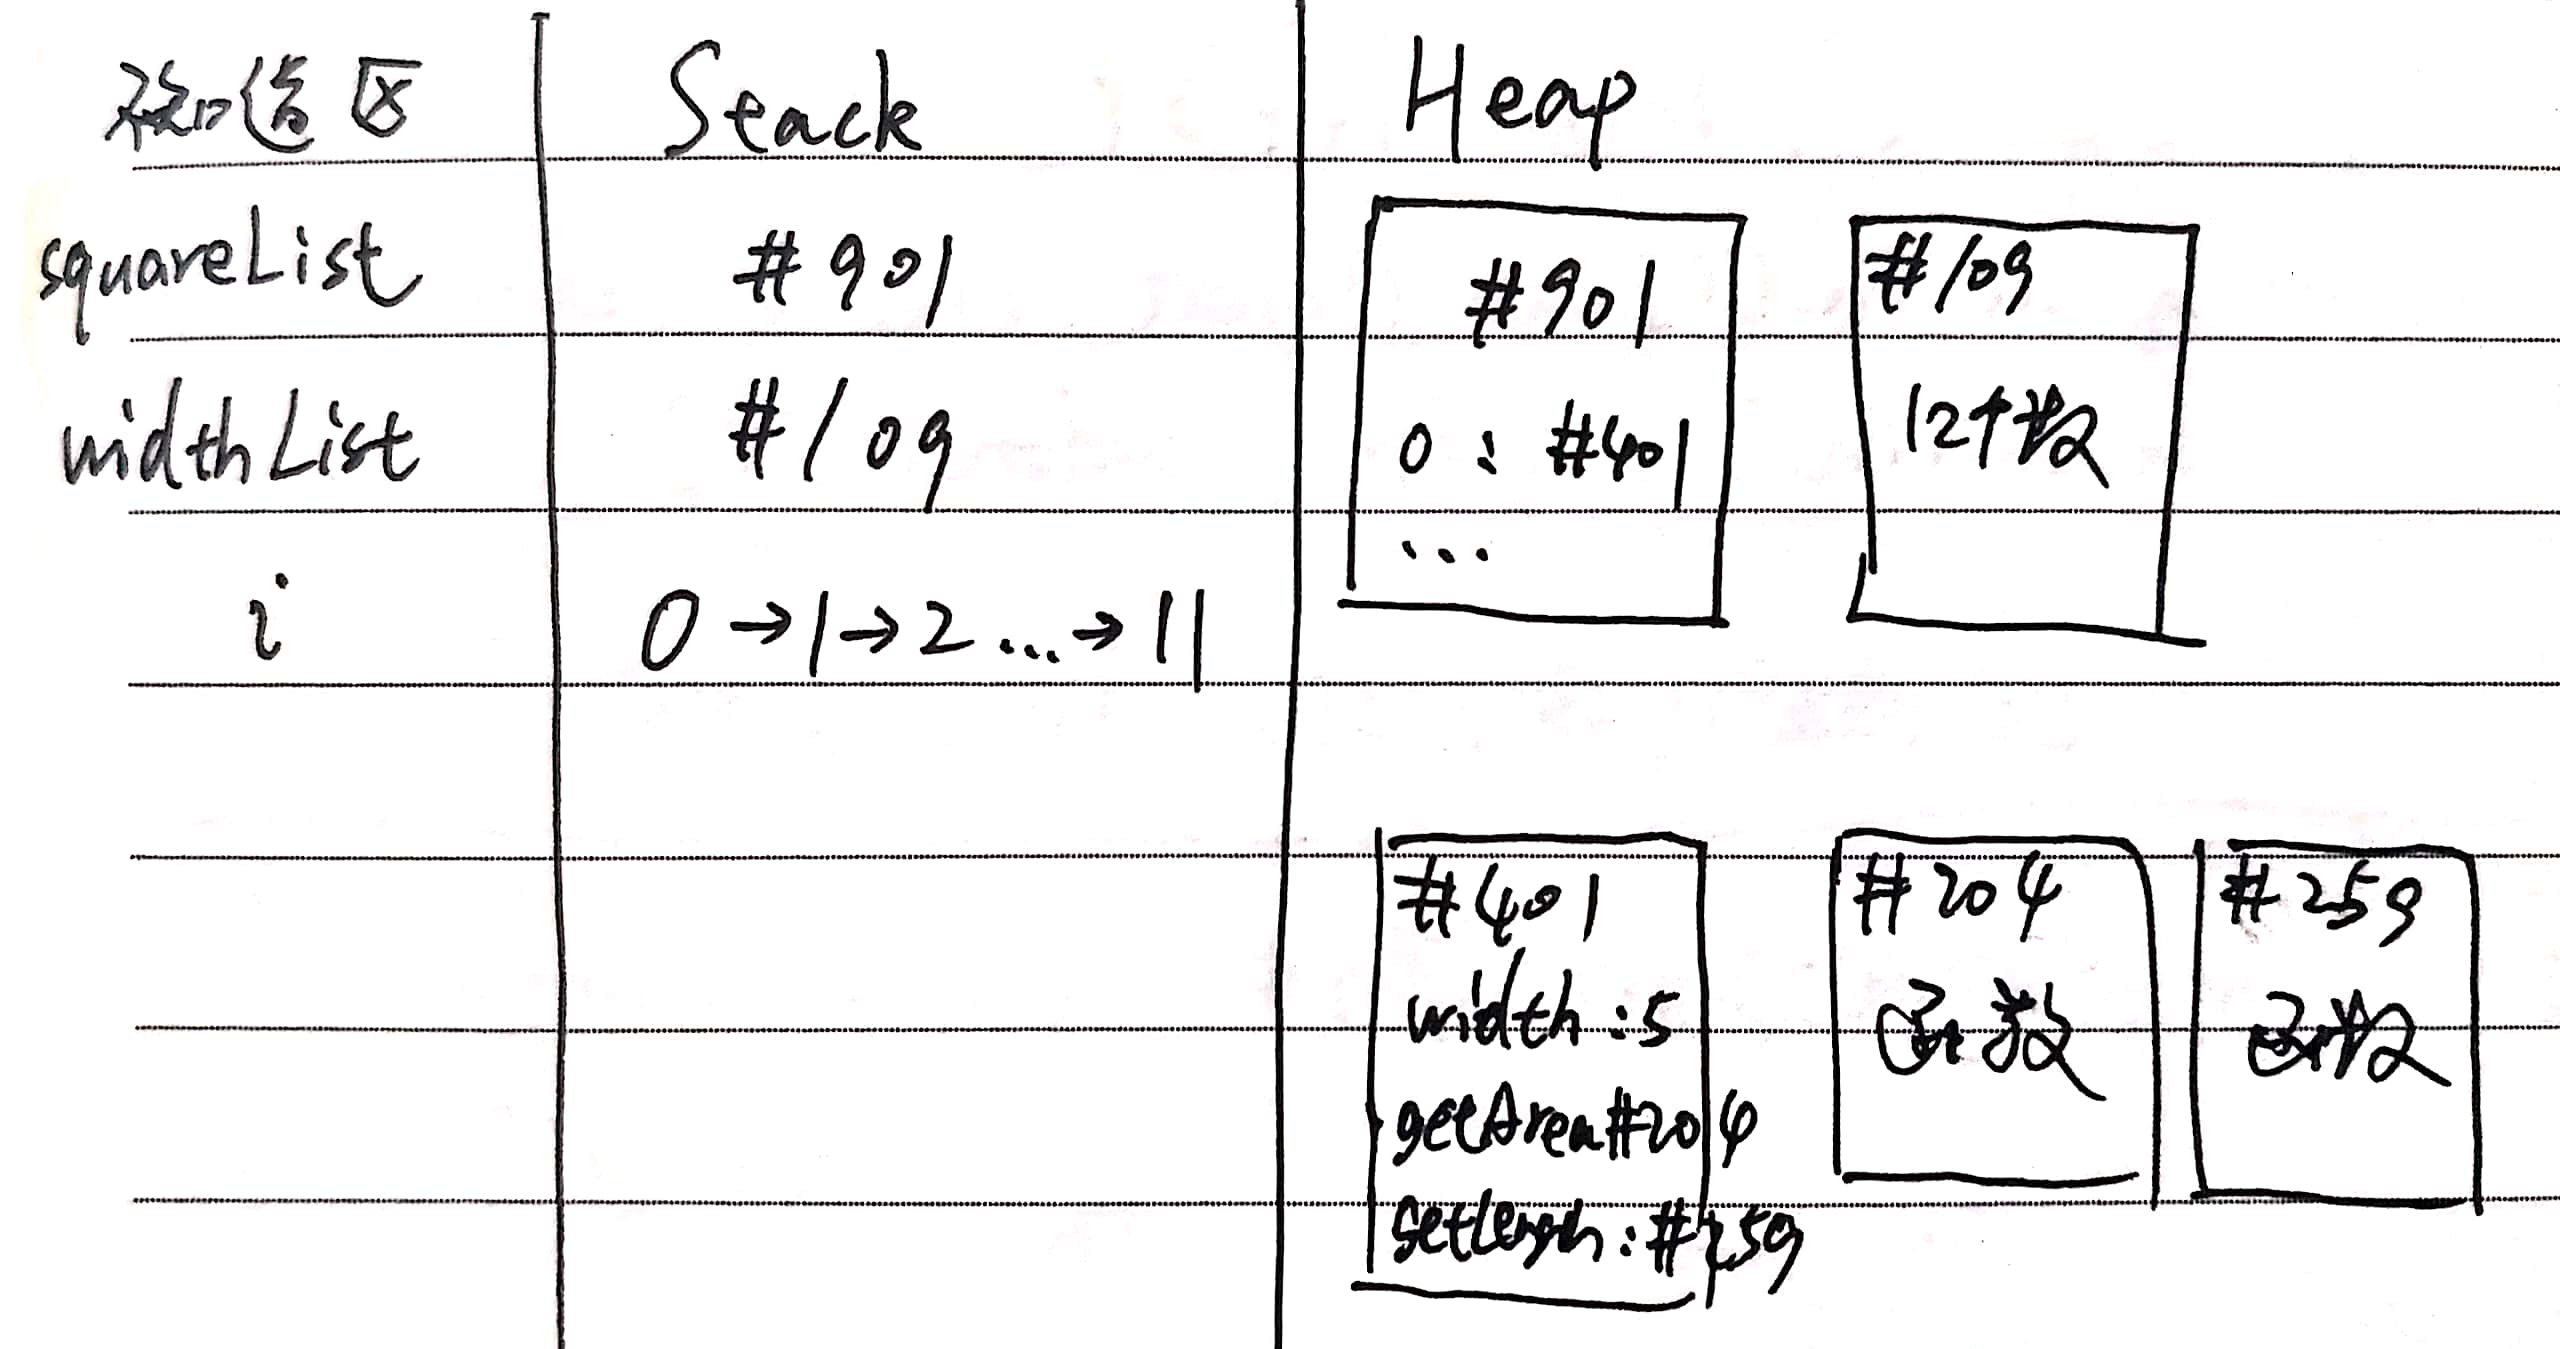 不知道区 Stack Heap
squareList #901
widthList #109
i 0→1→2...→11
#901
0:#401
...
#109
12个数
#401
width:5
getArea#204
getLength:#259
#204
函数
#259
函数